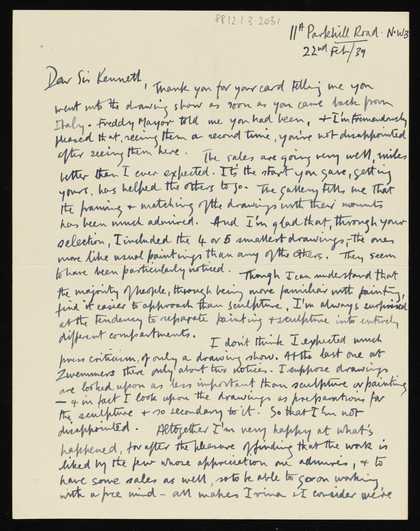 8812.1.3.2031
11A Parkhill Road. N.W.3
22nd Feb/39
Dear Sir Kenneth,
Thank you for your card telling me you
went into the drawing show as soon as you came back from
Italy. Freddy Mayor told me you had been, & I'm tremendously
pleased that, seeing them a second time, you're not disappointed
after seeing them here. The sales are going very well, miles
better than I ever expected. It's the start you gave, getting
yours, has helped the others to go. The gallery tells me that
the framing & matching of the drawings with their mounts
has been much admired. And I'm glad that, through your
selection, I included the 4 or 5 smallest drawings, – the ones
more like usual paintings than any of the others. They seem
to have been particularly noticed. Though I can understand that
the majority of people, through being more familiar with painting,
find it easier to approach than sculpture, I'm always surprised
at the tendency to separate painting & sculpture into entirely
different compartments.
I don't think I expected much
press criticism, of only a drawing show. At the last one at
Zwemmers there only about two notices. I suppose drawings
are looked upon as less important than sculpture or painting
– & in fact I look upon the drawings as preparations for
the sculpture & so secondary to it. So that I'm not
disappointed. Altogether I'm very happy at what's
happened, for after the pleasure of finding that the work is
liked by the few whose appreciation one admires, & to
have some sales as well, so to be able to go on working
with a free mind – all makes Irina & I consider we're